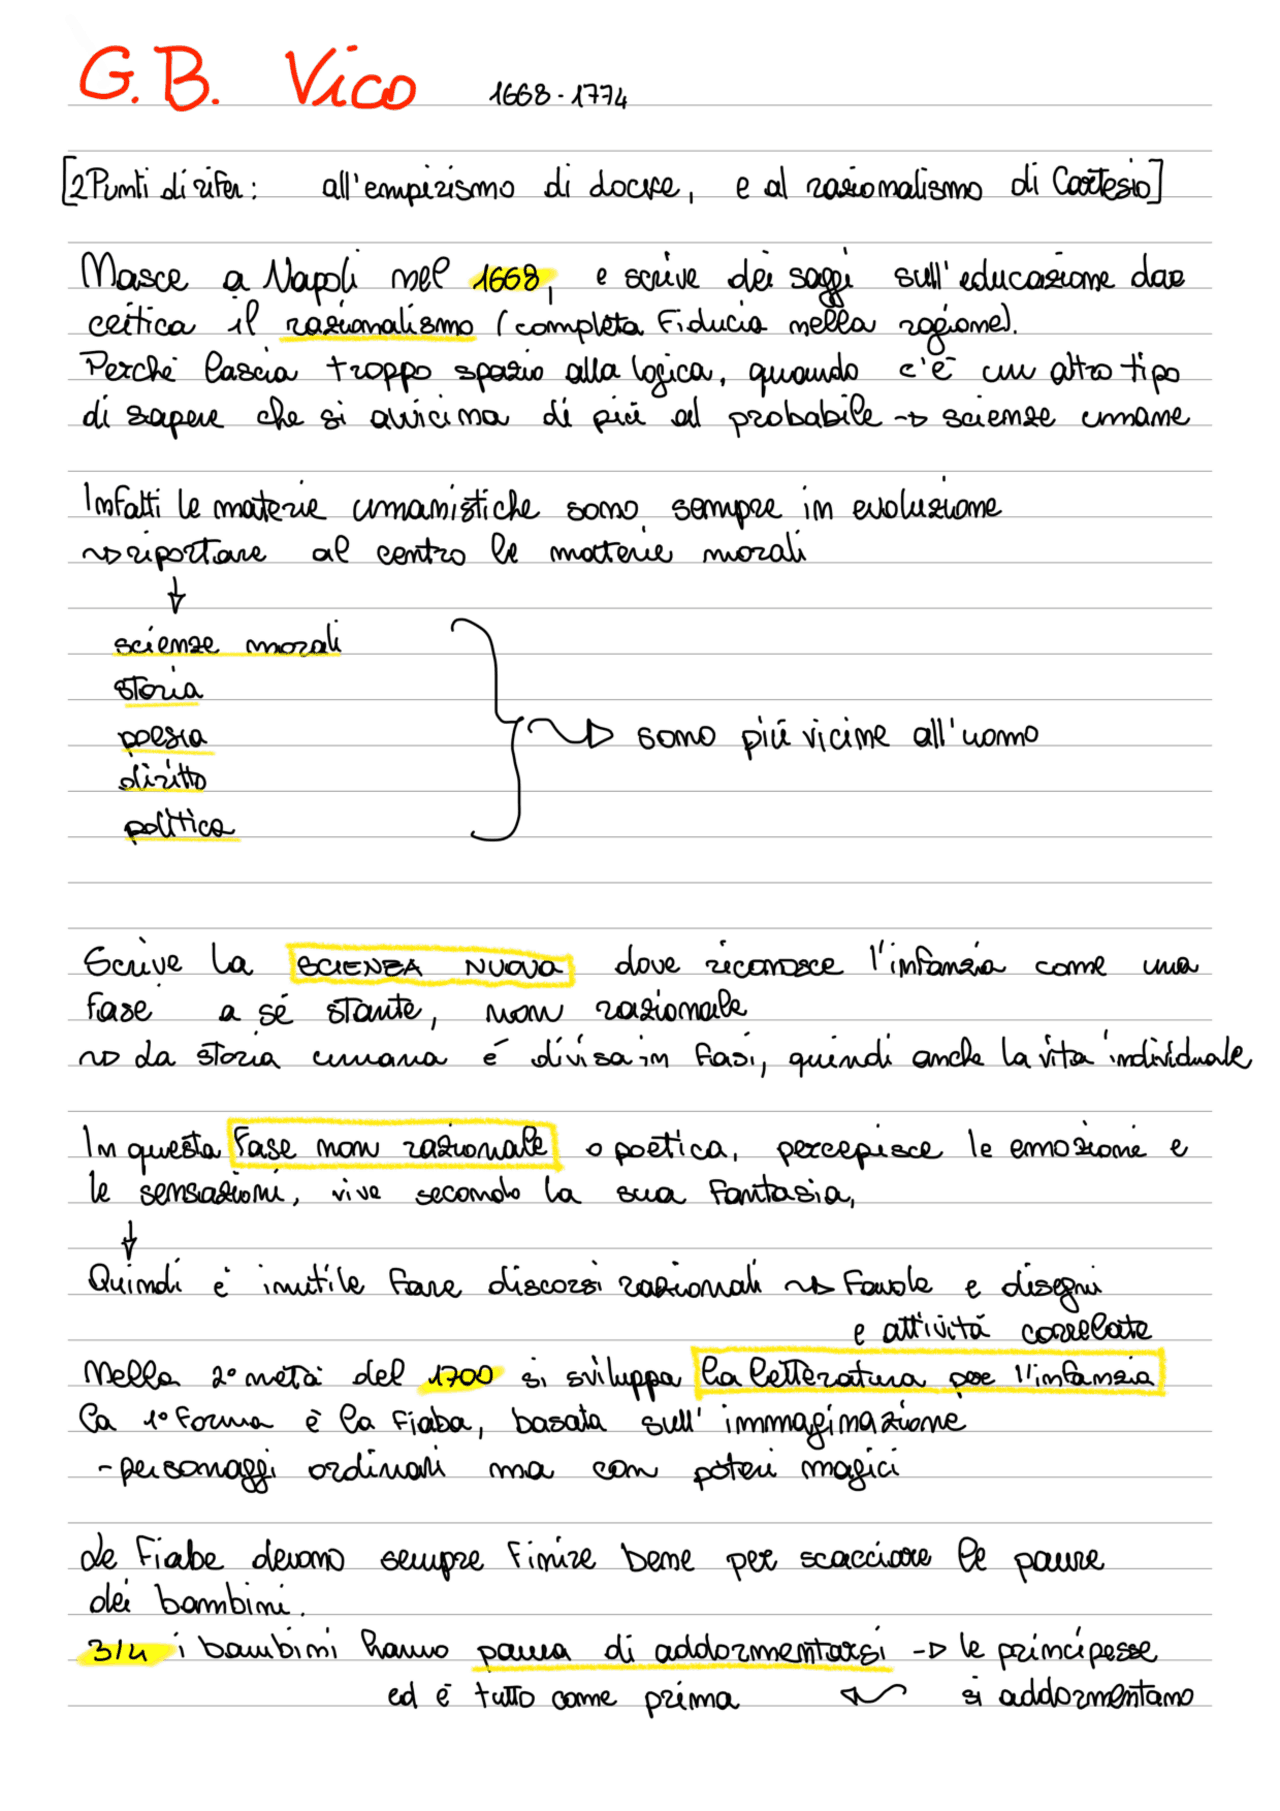 G.B. Vico 1668-1774
[2 Punti di rifer: all'empirismo di Locke, e al razionalismo di Cartesio]
Nasce a Napoli nel 1668, e scrive dei saggi sull'educazione dove
critica il razionalismo (completa fiducia nella ragione).
Perché lascia troppo spazio alla logica, quando c'è un altro tipo
di sapere che si avvicina di più al probabile → scienze umane
Infatti le materie umanistiche sono sempre in evoluzione
→ riportare al centro le materie morali
↓
scienze morali
storia
poesia
diritto
politica
→ sono più vicine all'uomo
Scrive la SCIENZA NUOVA dove riconosce l'infanzia come una
fase a sé stante, non razionale
→ La storia umana é divisa in fasi, quindi anche la vita individuale
In questa fase non razionale o poetica, percepisce le emozioni e
le sensazioni, vive secondo la sua fantasia,
↓
Quindi è inutile fare discorsi razionali → Favole e disegni
e attività correlate
Nella 2° metà del 1700 si sviluppa la letteratura per l'infanzia
la 1° forma è la fiaba, basata sull'immaginazione
- personaggi ordinari ma con poteri magici
Le fiabe devono sempre finire bene per scacciare le paure
dei bambini.
3/4 i bambini hanno paura di addormentarsi → le principesse
si addormentano
← ed è tutto come prima